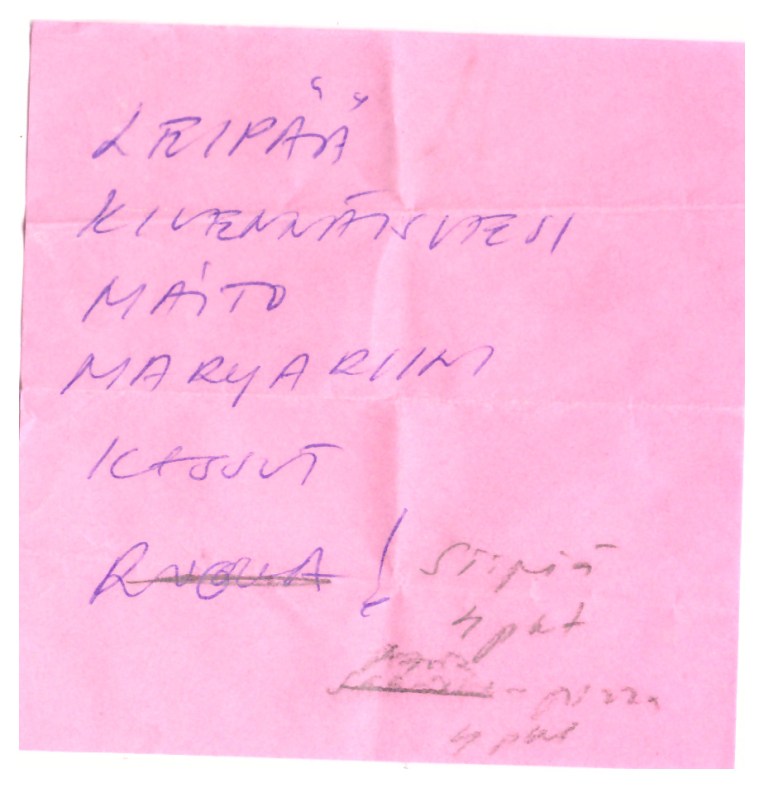 LEIPÄÄ
KIVENNÄISVESI
MAITO
MARGARIINI
KASSIT
RUOKA !
Siipiä
4 pkt
- pizza
4 pkt